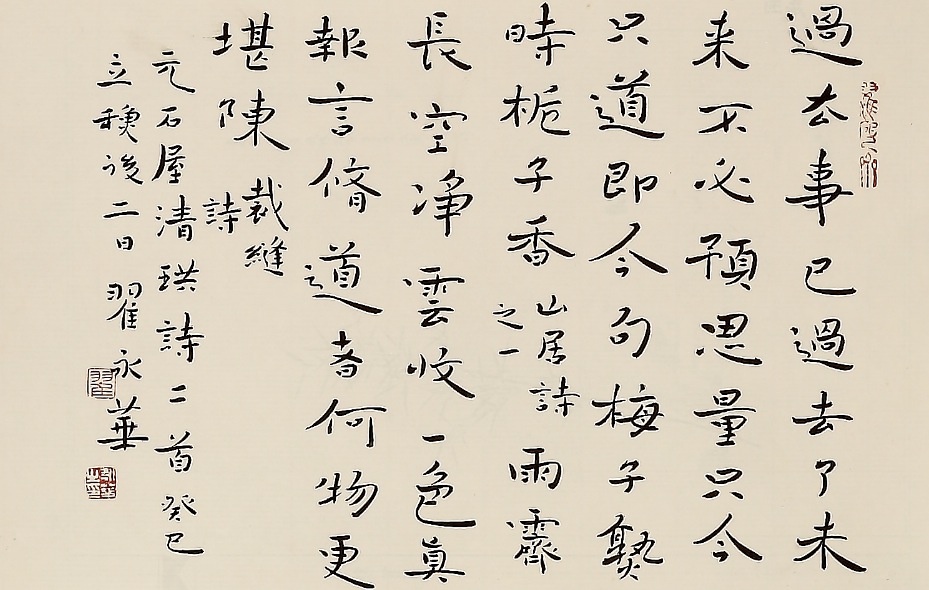 過去事已過去了未
来不必預思量只今
只道即今句梅子熟
時梔子香
山居詩
之一
雨霽
長空淨雲收一色眞
報言脩道者何物更
堪陳
裁縫
詩
元石屋清珙詩二首癸巳
立穐後二日翟永華